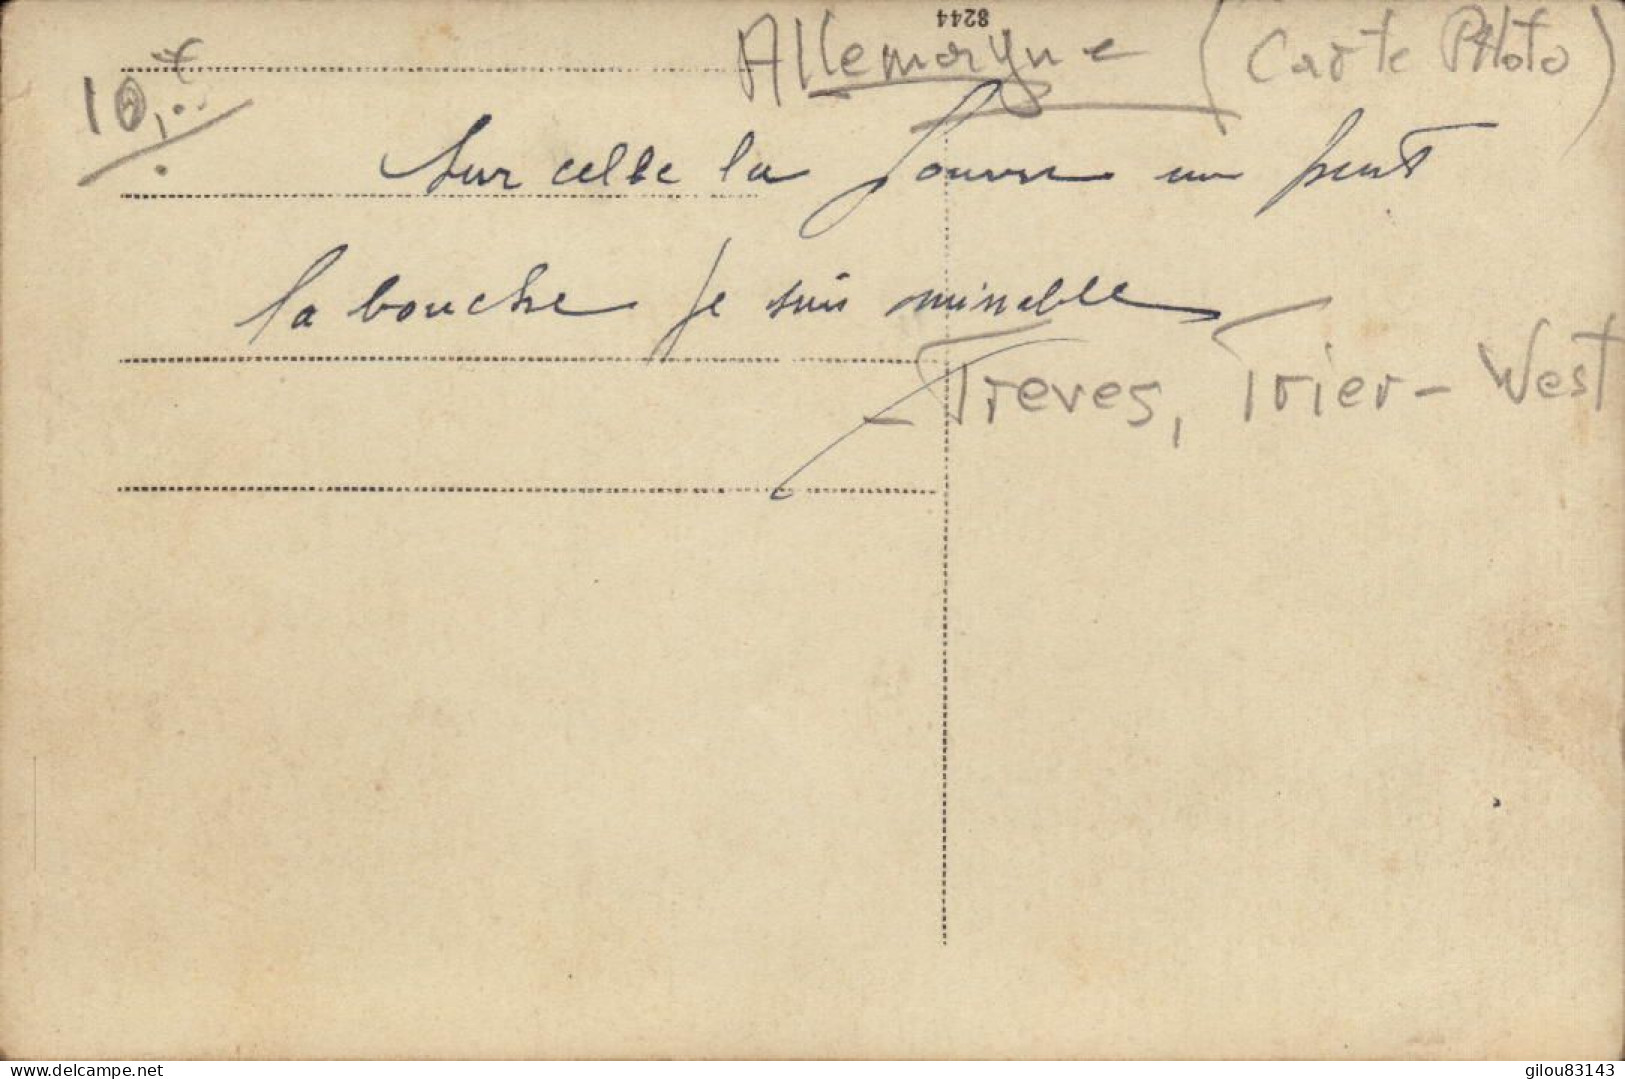 8244
Allemagne (Carte Photo)
10,. €
Sur celle la j'ouvre un peut
la bouche je suis minable
- Treves, Trier - West
delcampe.net
gilou83143